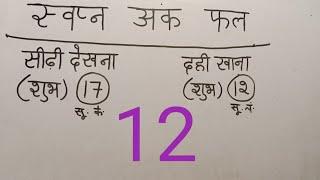 स्वप्न अंक फल
सीढ़ी देखना
(शुभ) 17
सू. के.
दही खाना
(शुभ) 12
सू. चं.
12